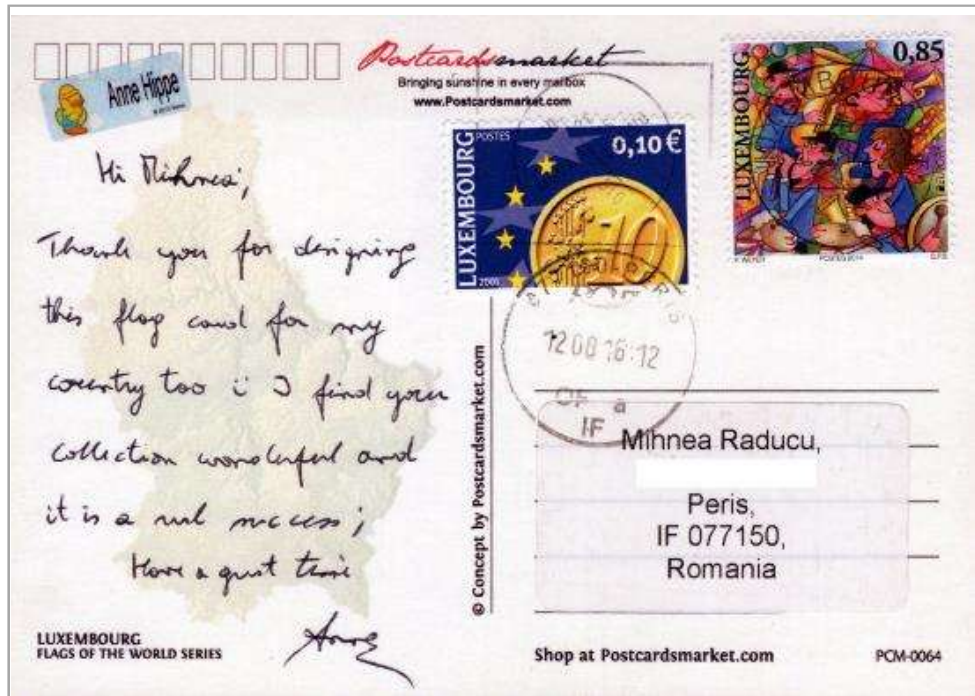 Postcardsmarket
Bringing sunshine in every mailbox
www.Postcardsmarket.com
Anne Hippe
LUXEMBOURG
POSTES
0,10 €
10
LUXEMBOURG
0,85
POSTES 2014
Hi Mihnea,
Thank you for designing
this flag card for my
country too ü I find your
collection wonderful and
it is a real success;
Have a great time
Anne
12 08 16 12
IF
© Concept by Postcardsmarket.com
Mihnea Raducu,
Peris,
IF 077150,
Romania
LUXEMBOURG
FLAGS OF THE WORLD SERIES
Shop at Postcardsmarket.com
PCM-0064